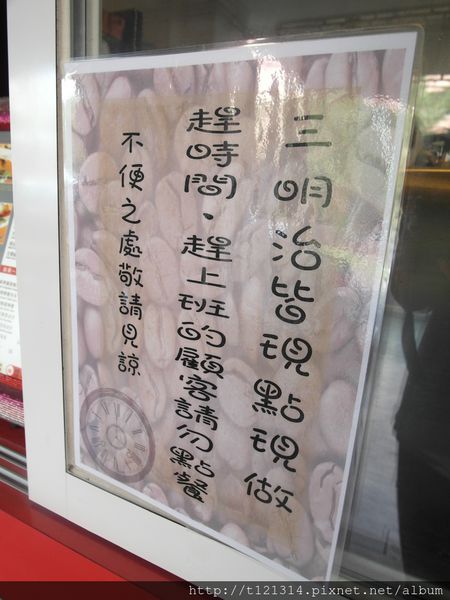 三明治皆現點現做
趕時間、趕上班的顧客請勿點餐
不便之處敬請見諒
http://t121314.pixnet.net/album